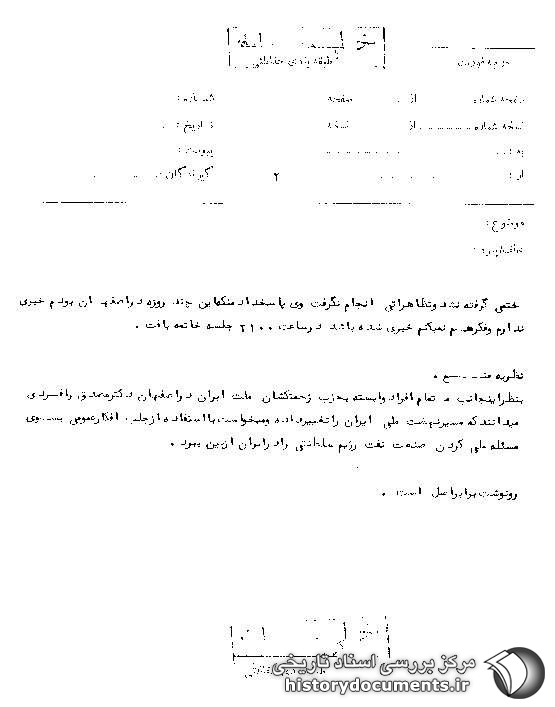 خیلی محرمانه
طبقه بندی حفاظتی
درجه فوریت
صفحه شماره از صفحه شماره :
نسخه شماره از نسخه تاریخ :
به : پیوست :
از : ۲ گیرندگان :
موضوع :
ختمی گرفته نشد وتظاهراتی انجام نگرفت وی پاسخداد منکه‌این چند روزه دراصفهان بودم خبری
ندارم وفکرهم نمیکنم خبری شده باشد درساعت ۲۱۰۰ جلسه خاتمه یافت .
نظریه منبع .
بنظراینجانب و تمام افراد وابسته بحزب زحمتکشان ملت ایران دراصفهان دکترمصدق رافردی
میدانندکه مسیرنهضت ملی ایران راتغییرداده ومیخواست بااستفاده ازجلب افکارعمومی بسوی
مسئله ملی کردن صنعت نفت رژیم سلطنتی رادرایران ازبین ببرد .
رونوشت برابراصل است .
مرکز بررسی اسناد تاریخی
historydocuments.ir